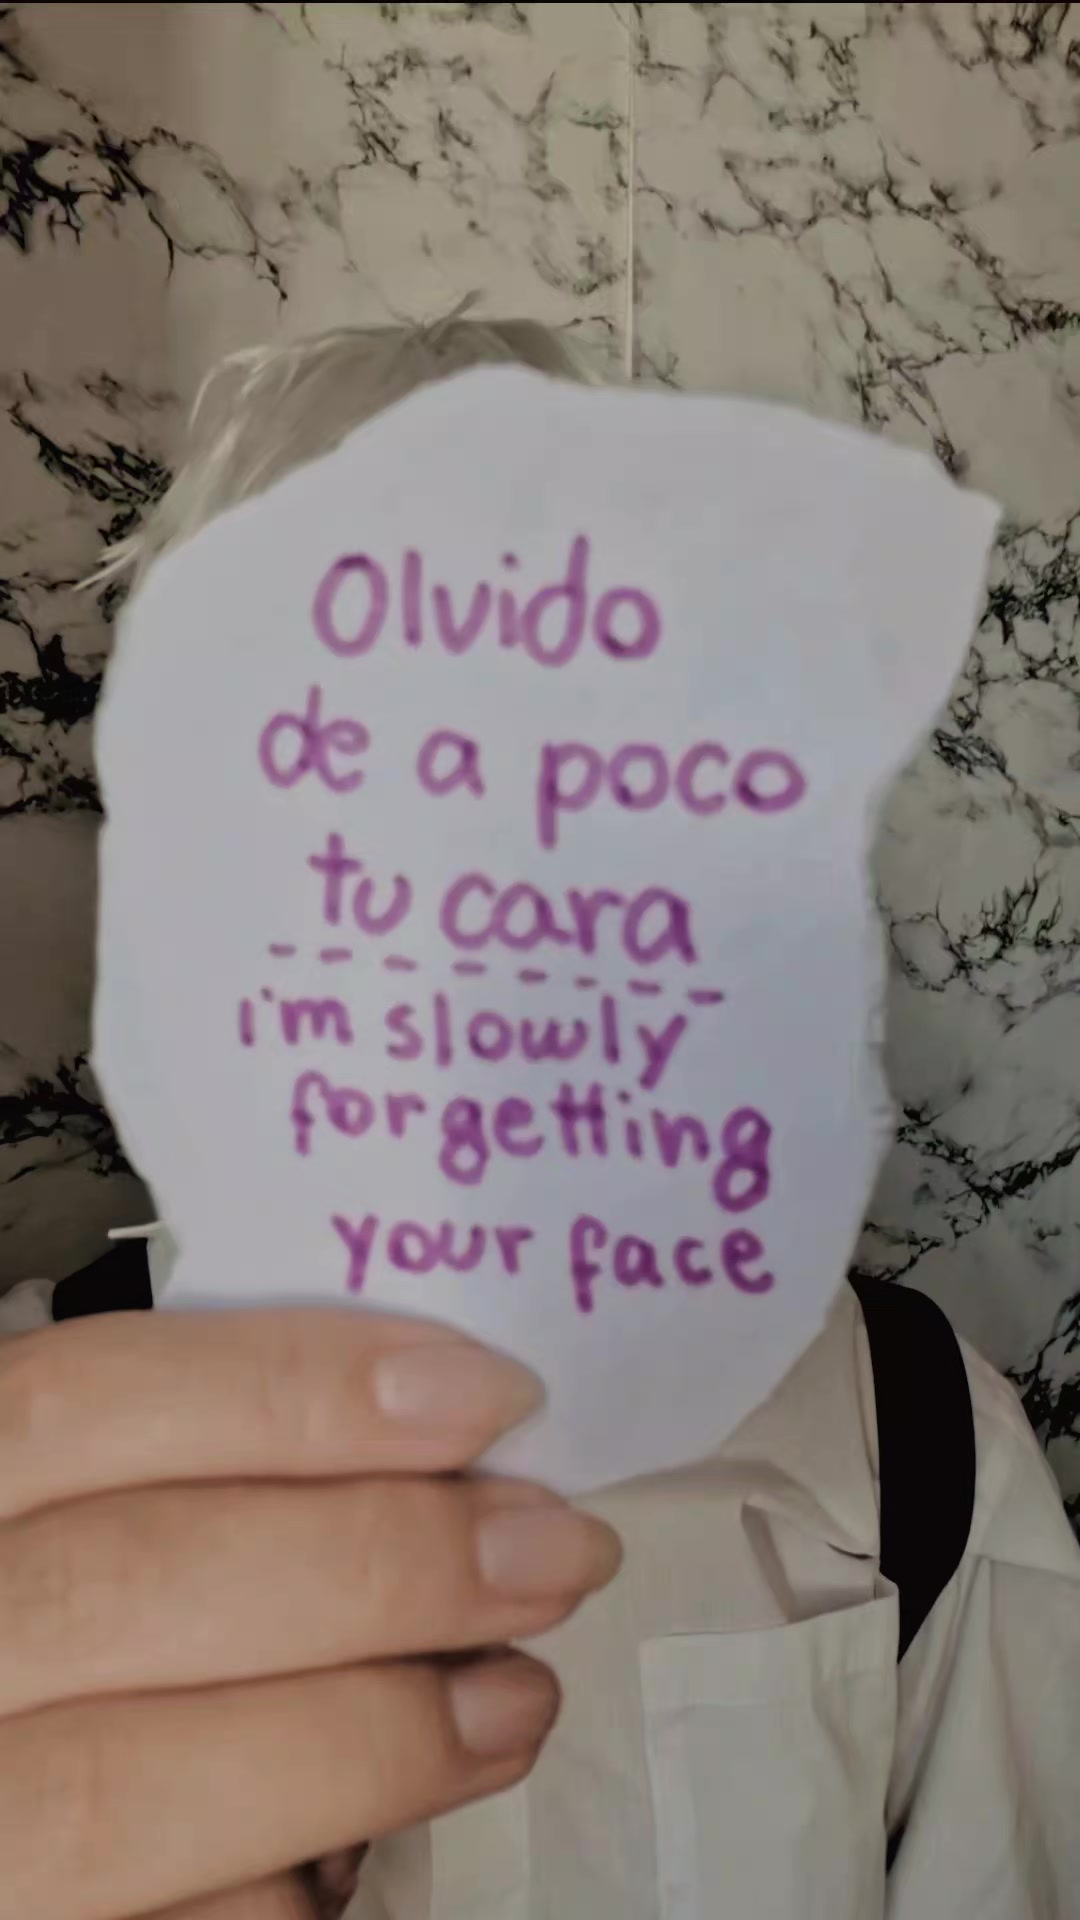 Olvido
de a poco
tu cara
--------
i'm slowly
forgetting
your face